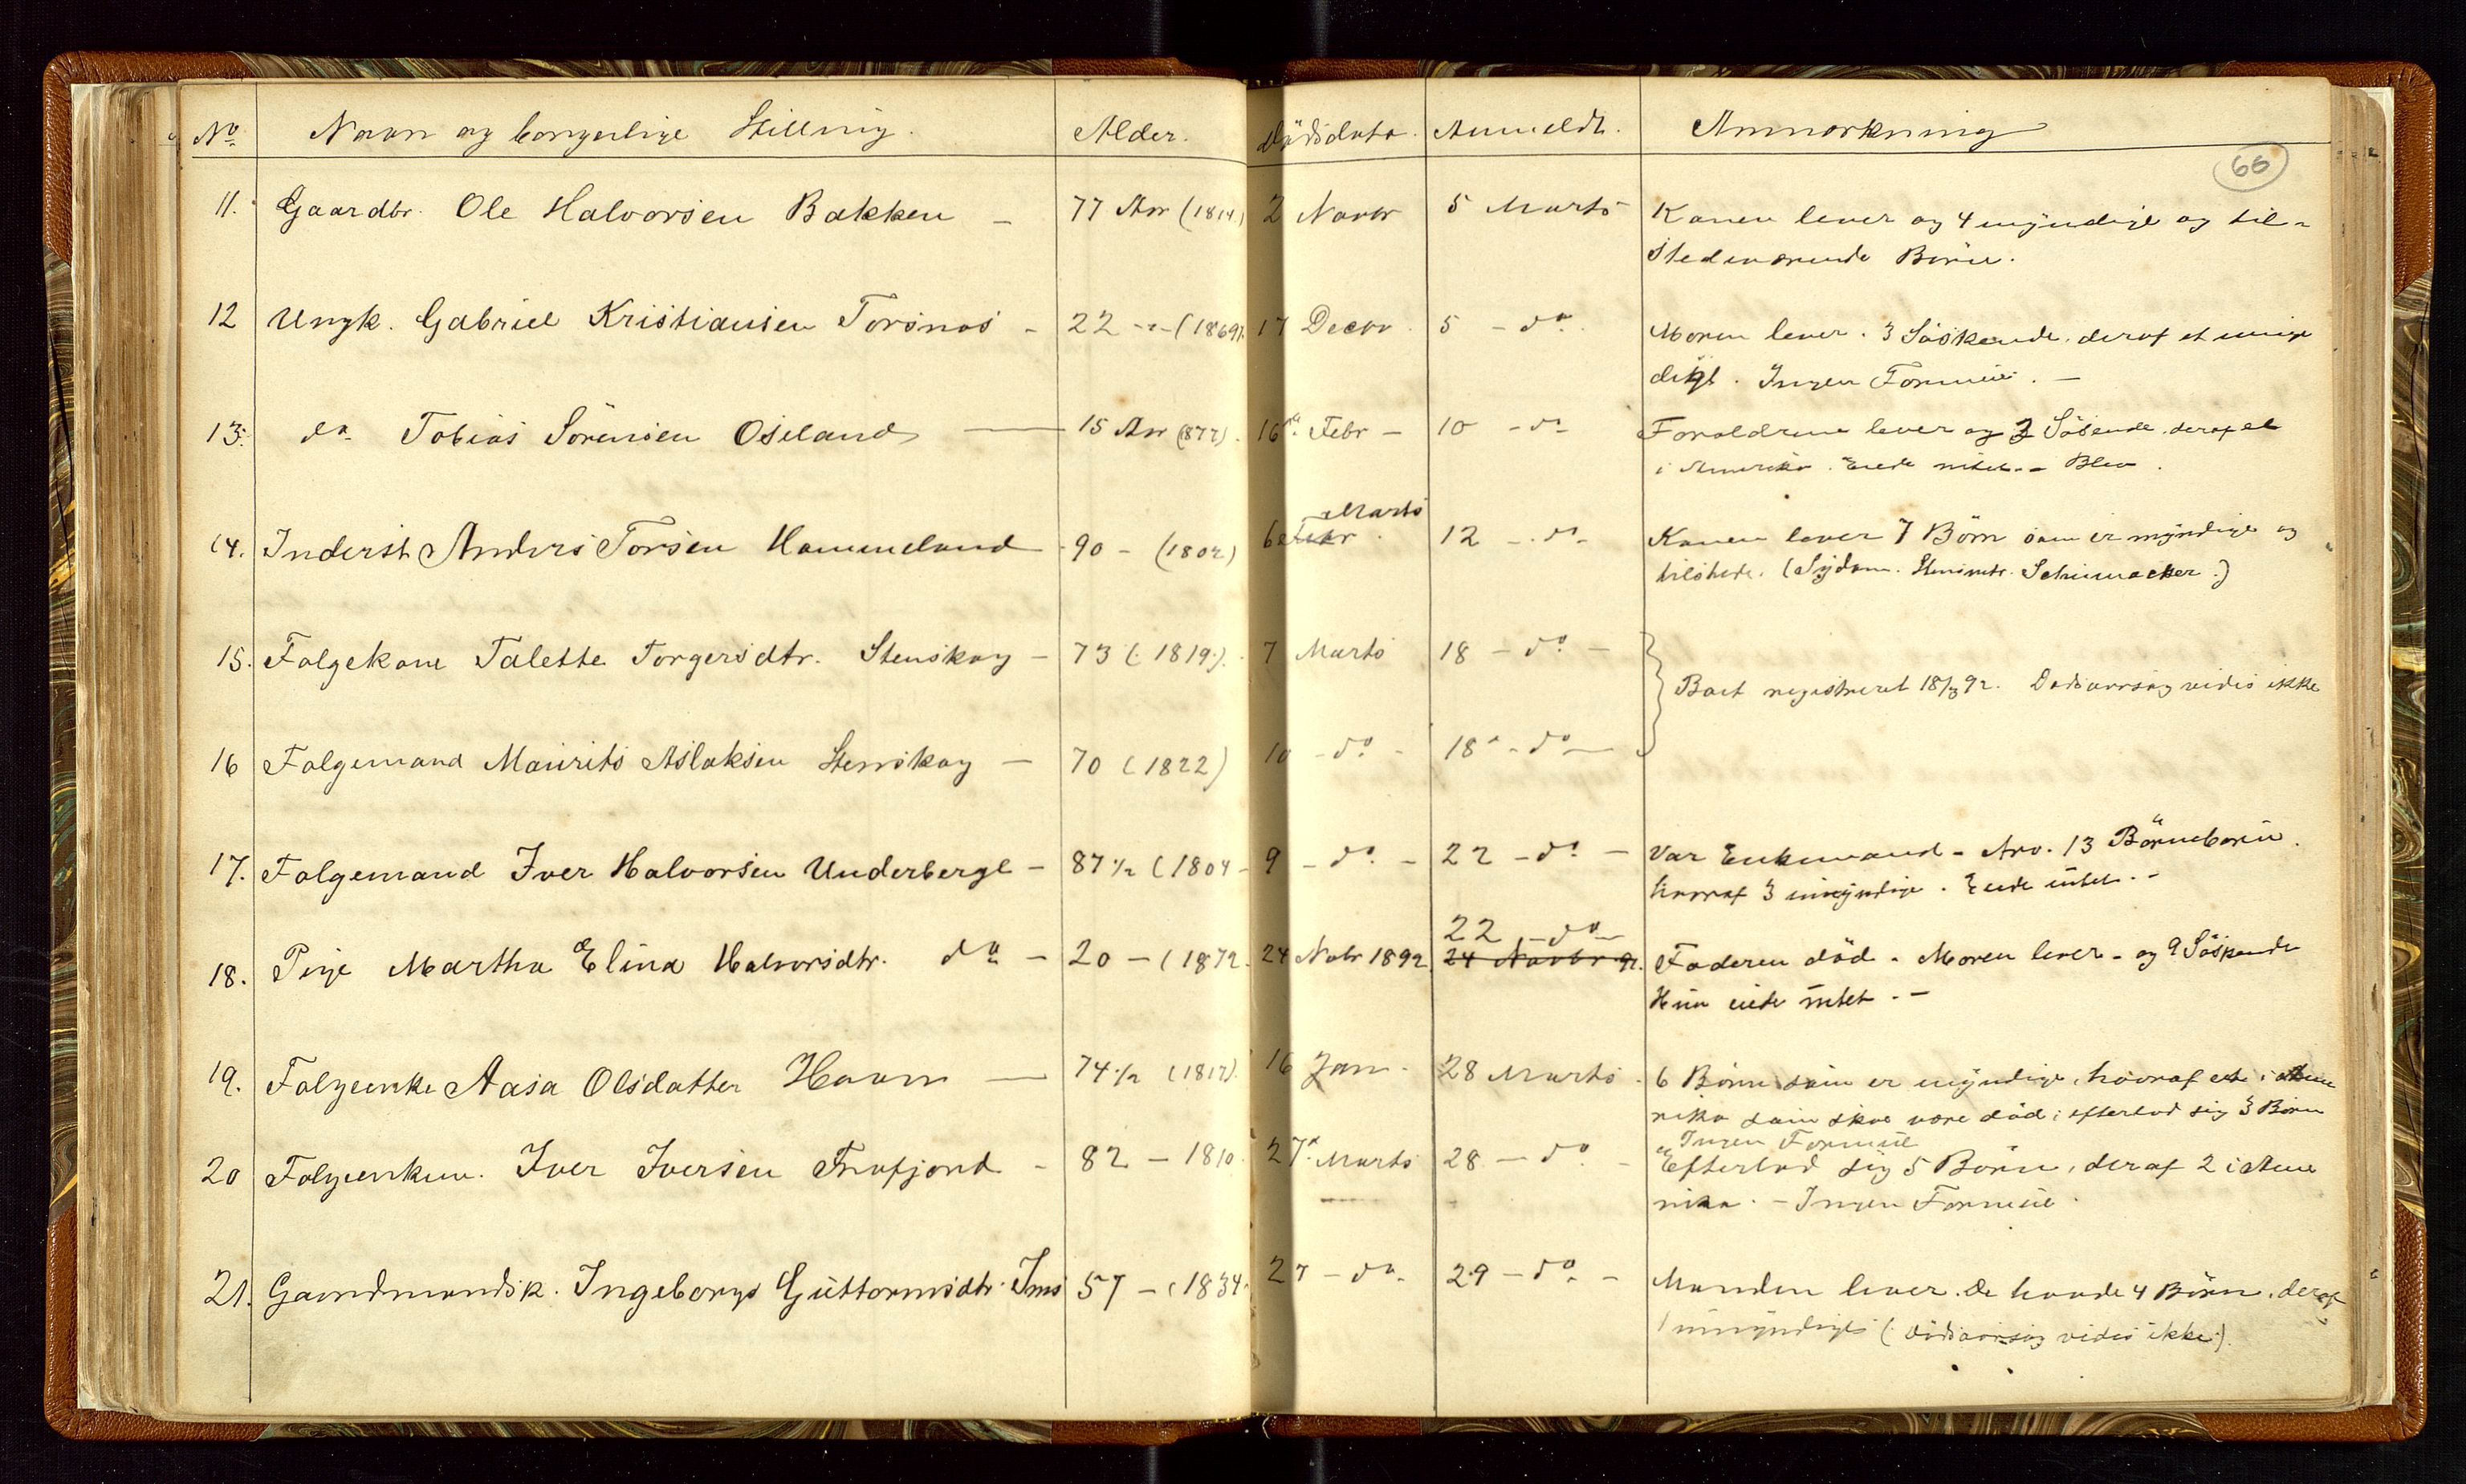 No Navn og borgerlige Stilling. Alder. Dödsdato. Anmeldt. Anmærkning
66
11. Gaardbr. Ole Halvorsen Bakken – 77 Aar (1814) 2 Novbr 5 Marts Konen lever og 4 myndige og til-
stedeværende Börn.
12 Ungk. Gabriel Kristiansen Torsnes - 22 -"- (1869). 17 Decbr. 5 - do. Moren lever. 3 Söskende, deraf et myn
digt. Ingen Formue. –
13. do Tobias Sörensen Oseland — 15 Aar (877). 16de Febr – 10 - do Forældrene lever og 2 Sösende deraf et
i Amerika. Eiede intet. -
Marts
14. Inderst Anders Torsen Hommeland - 90 - (1802) 6 Febr. 12 - do - Konen lever 7 Börn som er myndige og
tilstede. (Sygdom. Schumacker.)
15. Folgekone Talette Torgersdtr. Stenskog – 73 (1819). 7 Marts 18 – do – Boet registreret 18/3 92. Dödsaarsag vides ikke
16 Folgemand Maurits Aslaksen Stenskog – 70 (1822) 10 - do - 18 - do —
17. Folgemand Iver Halvorsen Underberge – 87 1/2 (1804 - 9 - do - 22 - do – Var Enkemand - Arv. 13 Börnebörn.
hvoraf 3 umyndige. Eiede intet. –
22 - do –
18. Pige Martha Elina Halvorsdtr. do – 20 – (1872. 24 Nobr 1892. 24 Novbr 92. Faderen död. Moren lever - og 9 Söskende
Hun eiede intet. –
19. Folgeenke Aasa Olsdatter Haavn — 74 1/2 (1817). 16 Jan. 28 Marts. 6 Börn som er myndige, hvoraf et i Ame
rika som skal være död; efterlod sig 3 Börn
Ingen Formue
20 Folgeenkem. Iver Iversen Frafjord - 82 – 1810. 27 Marts 28 – do - Efterlod sig 5 Börn, deraf 2 i Ame
rika. – Ingen Formue.
21. Gaardmandsk. Ingeborg Guttormsdtr. Ims 57 – (1834. 27 – do. 29 – do – Manden lever. De havde 4 Börn, deraf
1 umyndigt (Dödsaarsag vides ikke).